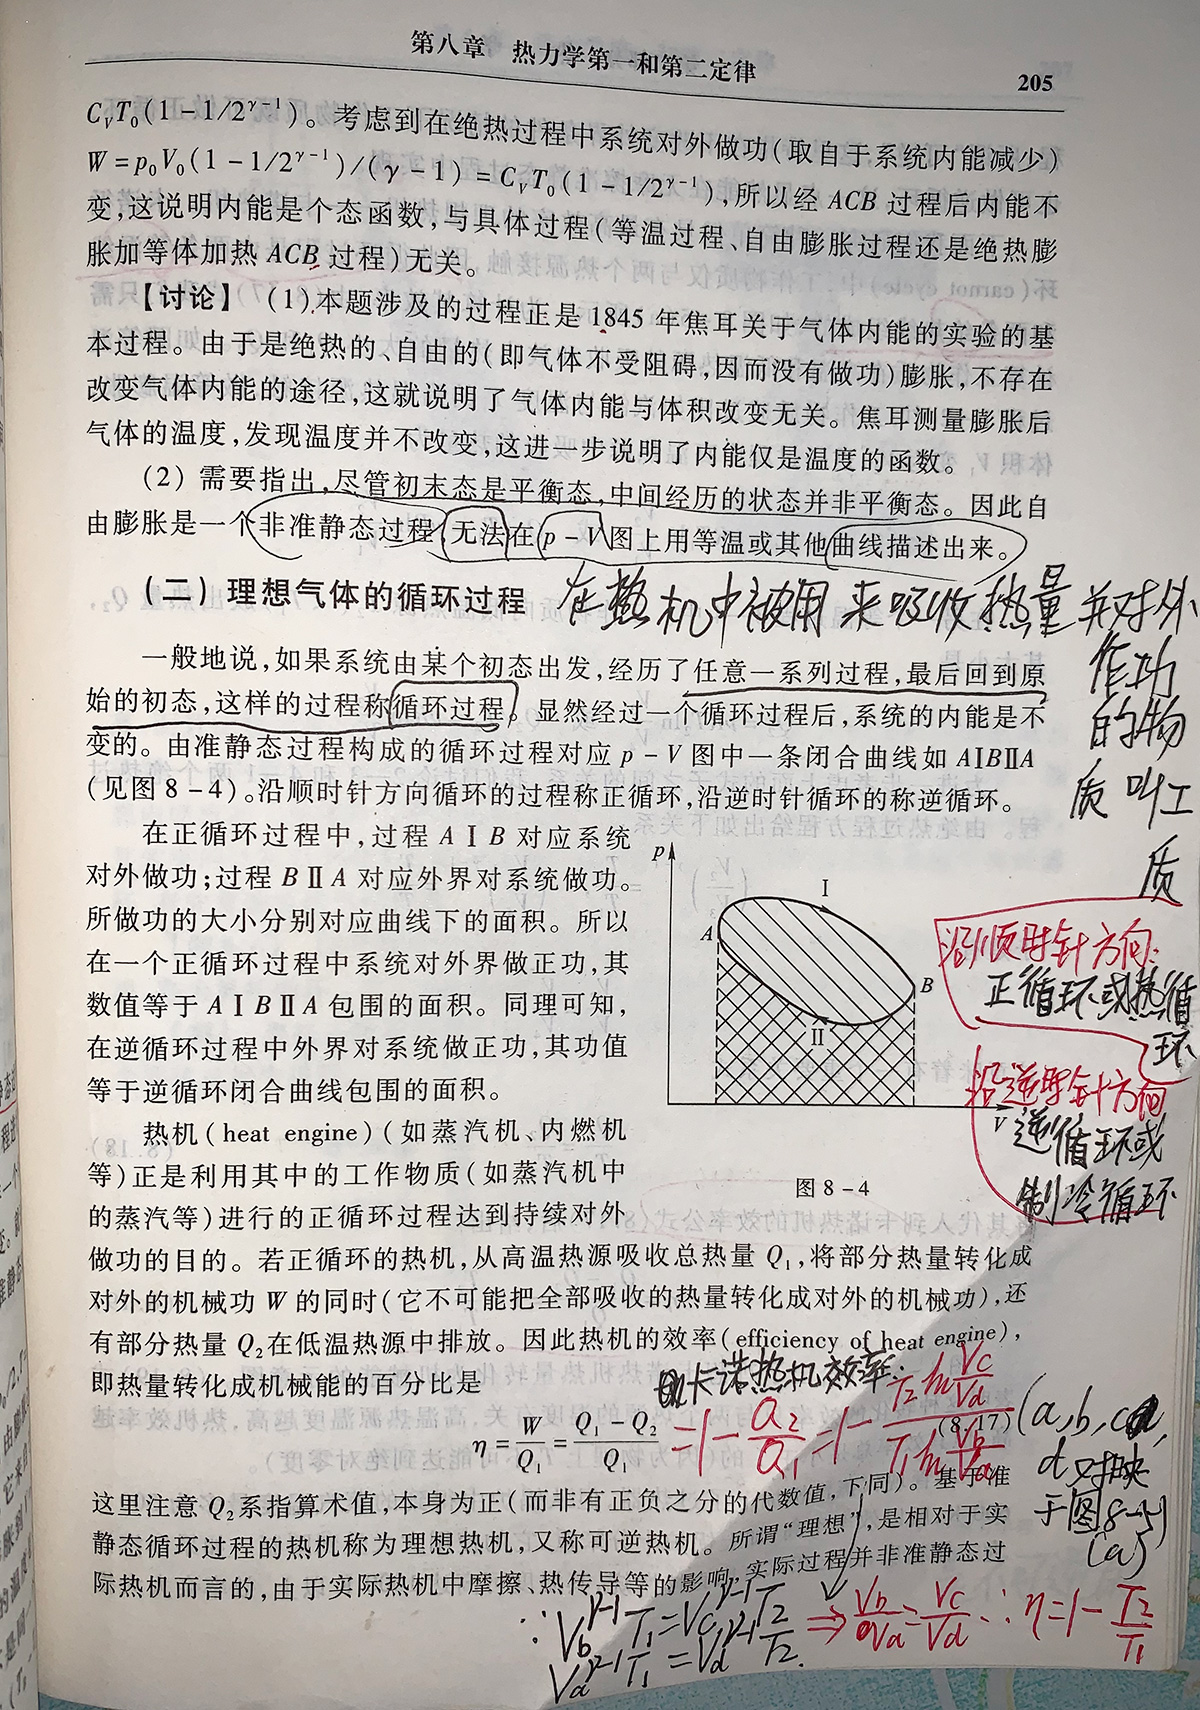 第八章 热力学第一和第二定律
205
C_VT_0(1-1/2^{γ-1})。考虑到在绝热过程中系统对外做功(取自于系统内能减少)
W=p_0V_0(1-1/2^{γ-1})/(γ-1)=C_VT_0(1-1/2^{γ-1}),所以经 ACB 过程后内能不
变,这说明内能是个态函数,与具体过程(等温过程、自由膨胀过程还是绝热膨
胀加等体加热 ACB 过程)无关。
【讨论】 (1)本题涉及的过程正是 1845 年焦耳关于气体内能的实验的基
本过程。由于是绝热的、自由的(即气体不受阻碍,因而没有做功)膨胀,不存在
改变气体内能的途径,这就说明了气体内能与体积改变无关。焦耳测量膨胀后
气体的温度,发现温度并不改变,这进一步说明了内能仅是温度的函数。
(2) 需要指出,尽管初末态是平衡态,中间经历的状态并非平衡态。因此自
由膨胀是一个非准静态过程,无法在 p-V 图上用等温或其他曲线描述出来。
(二)理想气体的循环过程
在热机中被用来吸收热量并对外
作功
的物
质叫工
质
一般地说,如果系统由某个初态出发,经历了任意一系列过程,最后回到原
始的初态,这样的过程称循环过程。显然经过一个循环过程后,系统的内能是不
变的。由准静态过程构成的循环过程对应 p-V 图中一条闭合曲线如 AⅠBⅡA
(见图 8-4)。沿顺时针方向循环的过程称正循环,沿逆时针循环的称逆循环。
在正循环过程中,过程 AⅠB 对应系统
对外做功;过程 BⅡA 对应外界对系统做功。
所做功的大小分别对应曲线下的面积。所以
在一个正循环过程中系统对外界做正功,其
数值等于 AⅠBⅡA 包围的面积。同理可知,
在逆循环过程中外界对系统做正功,其功值
等于逆循环闭合曲线包围的面积。
p
Ⅰ
A
B
Ⅱ
V
图 8-4
沿顺时针方向:
正循环或热循
环
沿逆时针方向
逆循环或
制冷循环
热机(heat engine)(如蒸汽机、内燃机
等)正是利用其中的工作物质(如蒸汽机中
的蒸汽等)进行的正循环过程达到持续对外
做功的目的。若正循环的热机,从高温热源吸收总热量 Q_1,将部分热量转化成
对外的机械功 W 的同时(它不可能把全部吸收的热量转化成对外的机械功),还
有部分热量 Q_2在低温热源中排放。因此热机的效率(efficiency of heat engine),
即热量转化成机械能的百分比是
卡诺热机效率:
η=W/Q_1=(Q_1-Q_2)/Q_1 (8.17)
=1-Q_2/Q_1=1-(T_2 ln V_c/V_d)/(T_1 ln V_b/V_a)
(a,b,c,
d对映
于图8-5
(a)
这里注意 Q_2系指算术值,本身为正(而非有正负之分的代数值,下同)。基于准
静态循环过程的热机称为理想热机,又称可逆热机。所谓“理想”,是相对于实
际热机而言的,由于实际热机中摩擦、热传导等的影响,实际过程并非准静态过
∵V_b^{γ-1}T_1=V_c^{γ-1}T_2
V_a^{γ-1}T_1=V_d^{γ-1}T_2.
⇒V_b/V_a=V_c/V_d ∴η=1-T_2/T_1